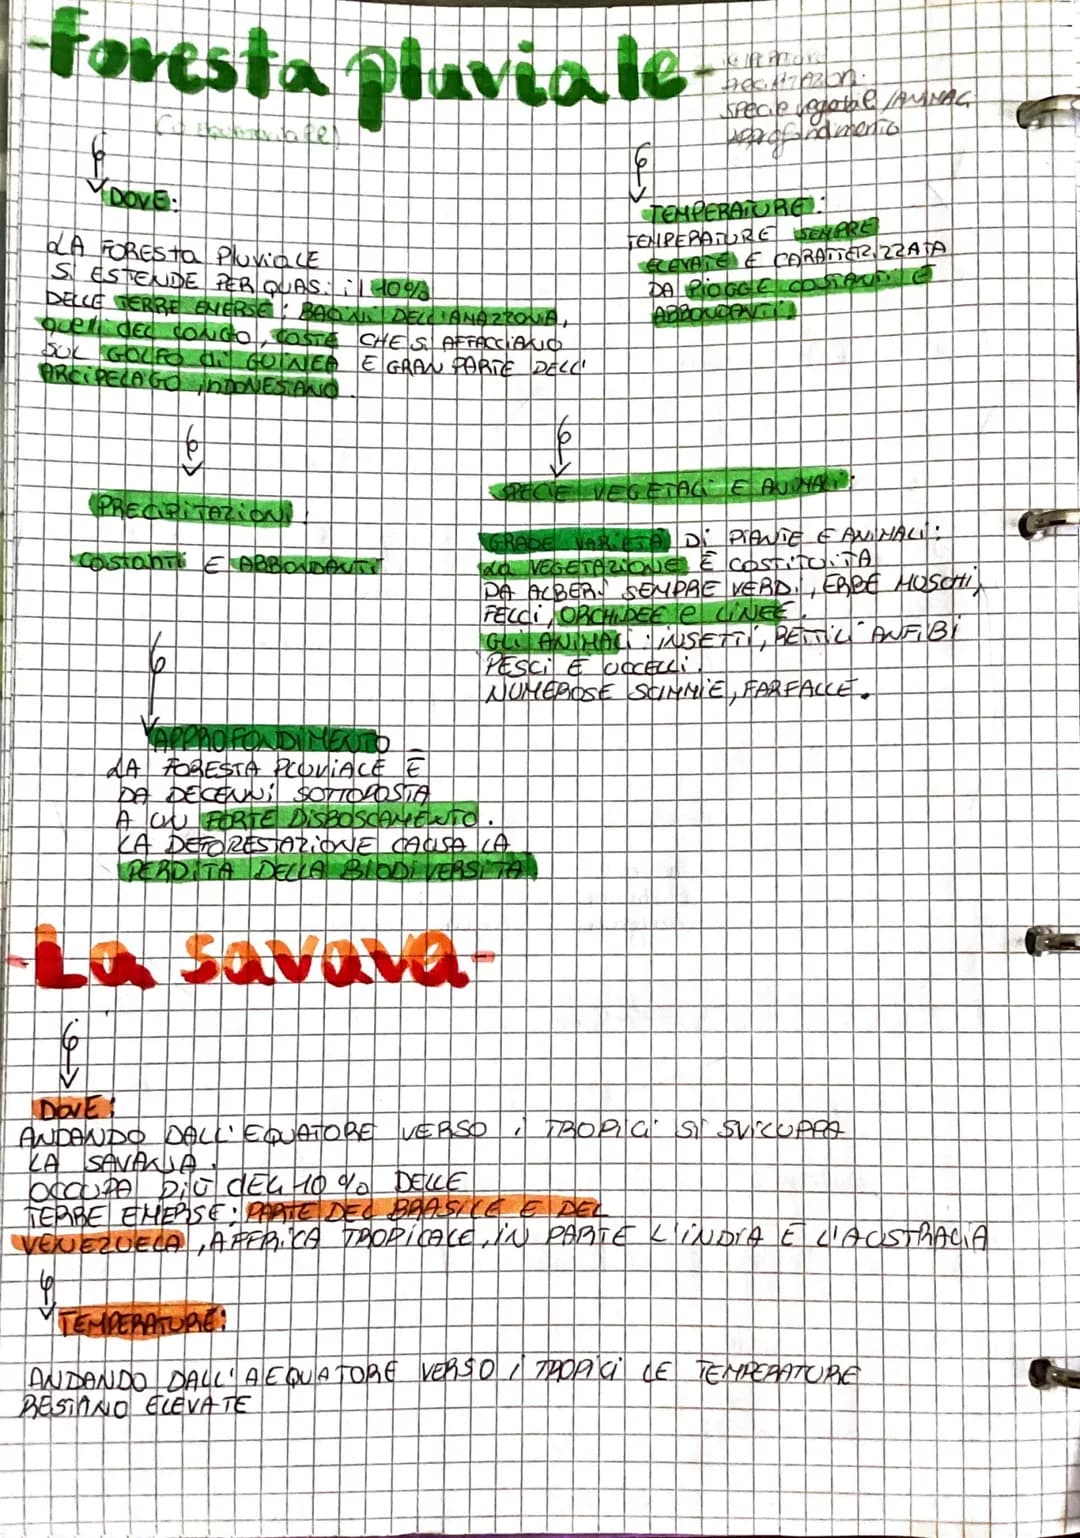 -foresta pluviale-
specie vegetali/ANIMAL
approfondimento
DOVE:
LA FORESTA PluViALE
SI ESTENDE PER QUASi il 10%
DELLE TERRE EMERSE: BACINI DELL'AMAZZONIA,
quelli DEL CONGO, COSTE CHE SI AFFACCIANO
SUL GOLFO di GUINEA E GRAN PARTE DELL'
ARCIPELAGO iNDONESIANO.
TEMPERATURE:
TEMPERATURE SEMPRE
ELEVATE E CARATTERIZZATA
DA PIOGGE COSTANTI E
ABBONDANTI
PRECIPITAZIONI:
COSTANTI E ABBONDANTI
SPECIE VEGETALI E ANIMALI:
GRADE VARIETÀ DI PIANTE E ANIMALI:
LA VEGETAZIONE È COSTITUITA
DA ALBERI SEMPRE VERDI, ERBE MUSCHI,
FELCI, ORCHIDEE e LINEE.
GLI ANIMALI: INSETTI, RETTILI ANFIBI
PESCI E UCCELLI.
NUMEROSE SCIMMIE, FARFALLE.
APPROFONDIMENTO
LA FORESTA PLUVIALE È
DA DECENNI SOTTOPOSTA
A UN FORTE DISBOSCAMENTO.
LA DEFORESTAZIONE CAUSA LA
PERDITA DELLA BIODIVERSITÀ
-La savava-
DOVE:
ANDANDO DALL'EQUATORE VERSO i TROPICI SI SVILUPPA
LA SAVANA.
OCCUPA PIÙ DEL 10% DELLE
TERRE EMERSE: PARTE DEL BRASILE E DEL
VENEZUELA, AFFRICA TROPICALE, IN PARTE L'INDIA E L'AUSTRALIA
TEMPERATURE:
ANDANDO DALL'AEQUATORE VERSO I TROPICI LE TEMPERATURE
RESTANO ELEVATE